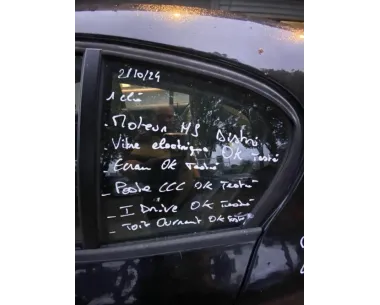 21/10/24
1 clé
- Moteur HS Distri
- Vitre electrique OK Testé
- Ecran OK Testé
- Poste CCC OK Testé
- I Drive OK Testé
- Toit Ouvrant OK Testé